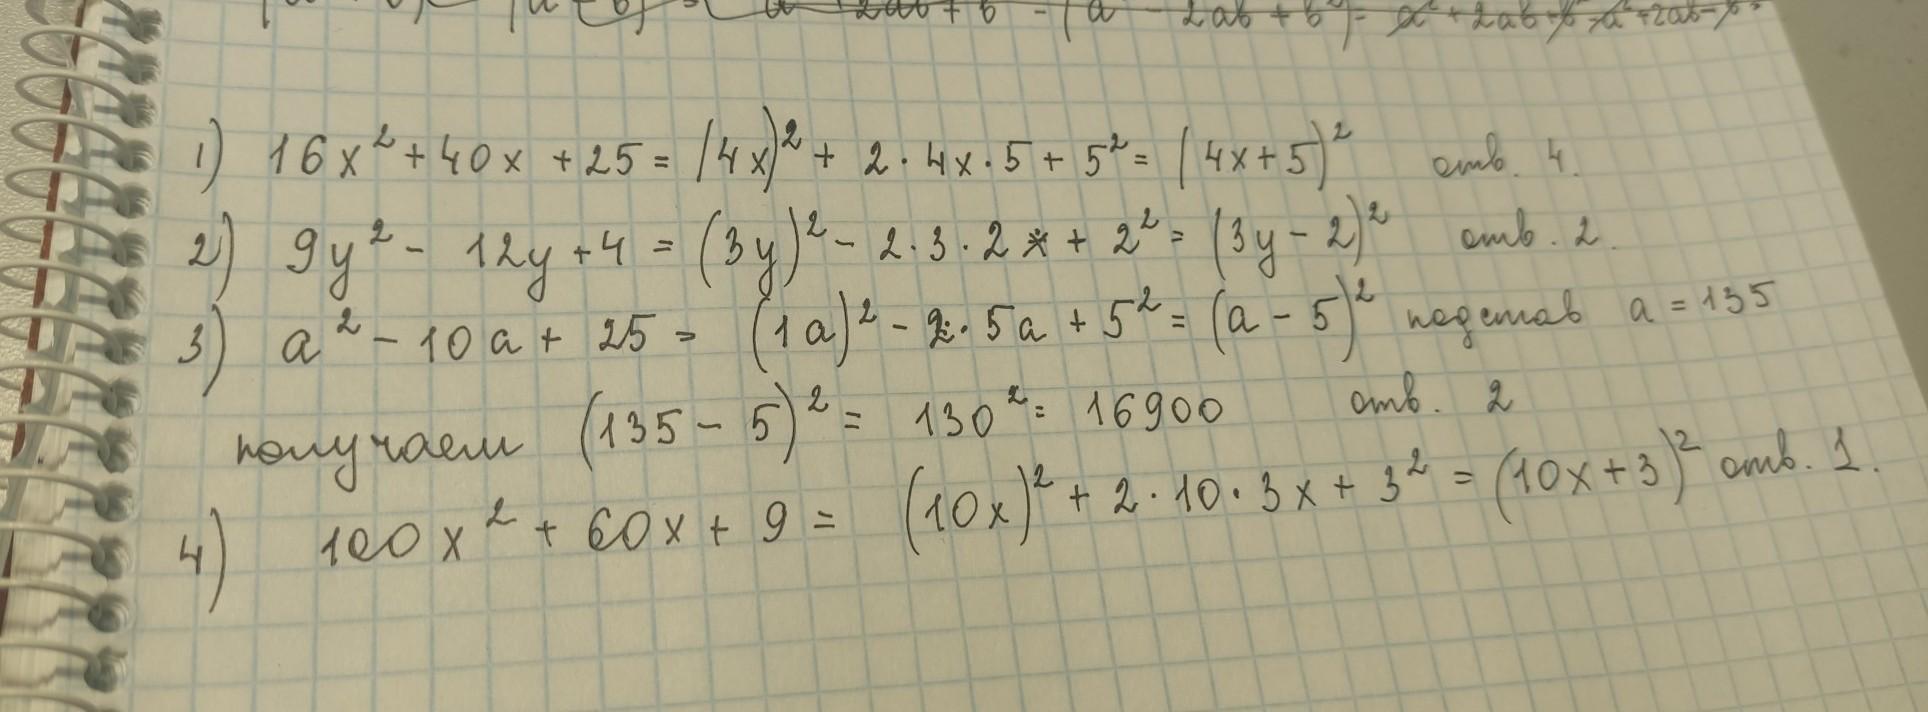 (a - b)² = a² + 2ab + b² - (a² - 2ab + b²) = a² + 2ab + b² - a² + 2ab - b² =
1) 16x² + 40x + 25 = (4x)² + 2 · 4x · 5 + 5² = (4x + 5)² отв. 4.
2) 9y² - 12y + 4 = (3y)² - 2 · 3 · 2 x + 2² = (3y - 2)² отв. 2.
3) a² - 10a + 25 = (1a)² - 2 · 5a + 5² = (a - 5)² подстав a = 135
получаем (135 - 5)² = 130² = 16900 отв. 2
4) 100x² + 60x + 9 = (10x)² + 2 · 10 · 3x + 3² = (10x + 3)² отв. 1.